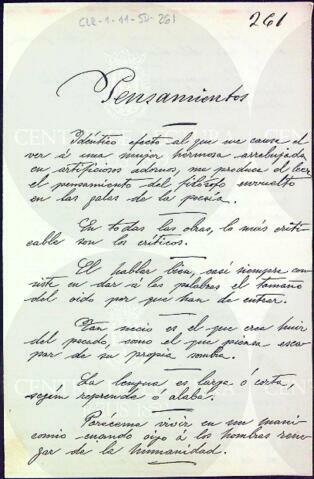 CLR-1-11-50-261
261
Pensamientos
Idéntico efecto al que me causa el
ver á una mujer hermosa arrebujada
en artificiosos adornos, me produce el leer
el pensamiento del filósofo envuelto
en las galas de la poesía.
En todas las obras, lo más criti-
cable son los críticos.
El hablar bien, casi siempre con-
siste en dar á las palabras el tamaño
del oido por que han de entrar.
Tan necio es el que crea huir
del pecado, como el que piensa esca-
par de su propia sombra.
La lengua es larga ó corta,
segun reprenda ó alaba.
Pareceme vivir en un mani-
comio cuando oigo á los hombres rene-
gar de la humanidad.